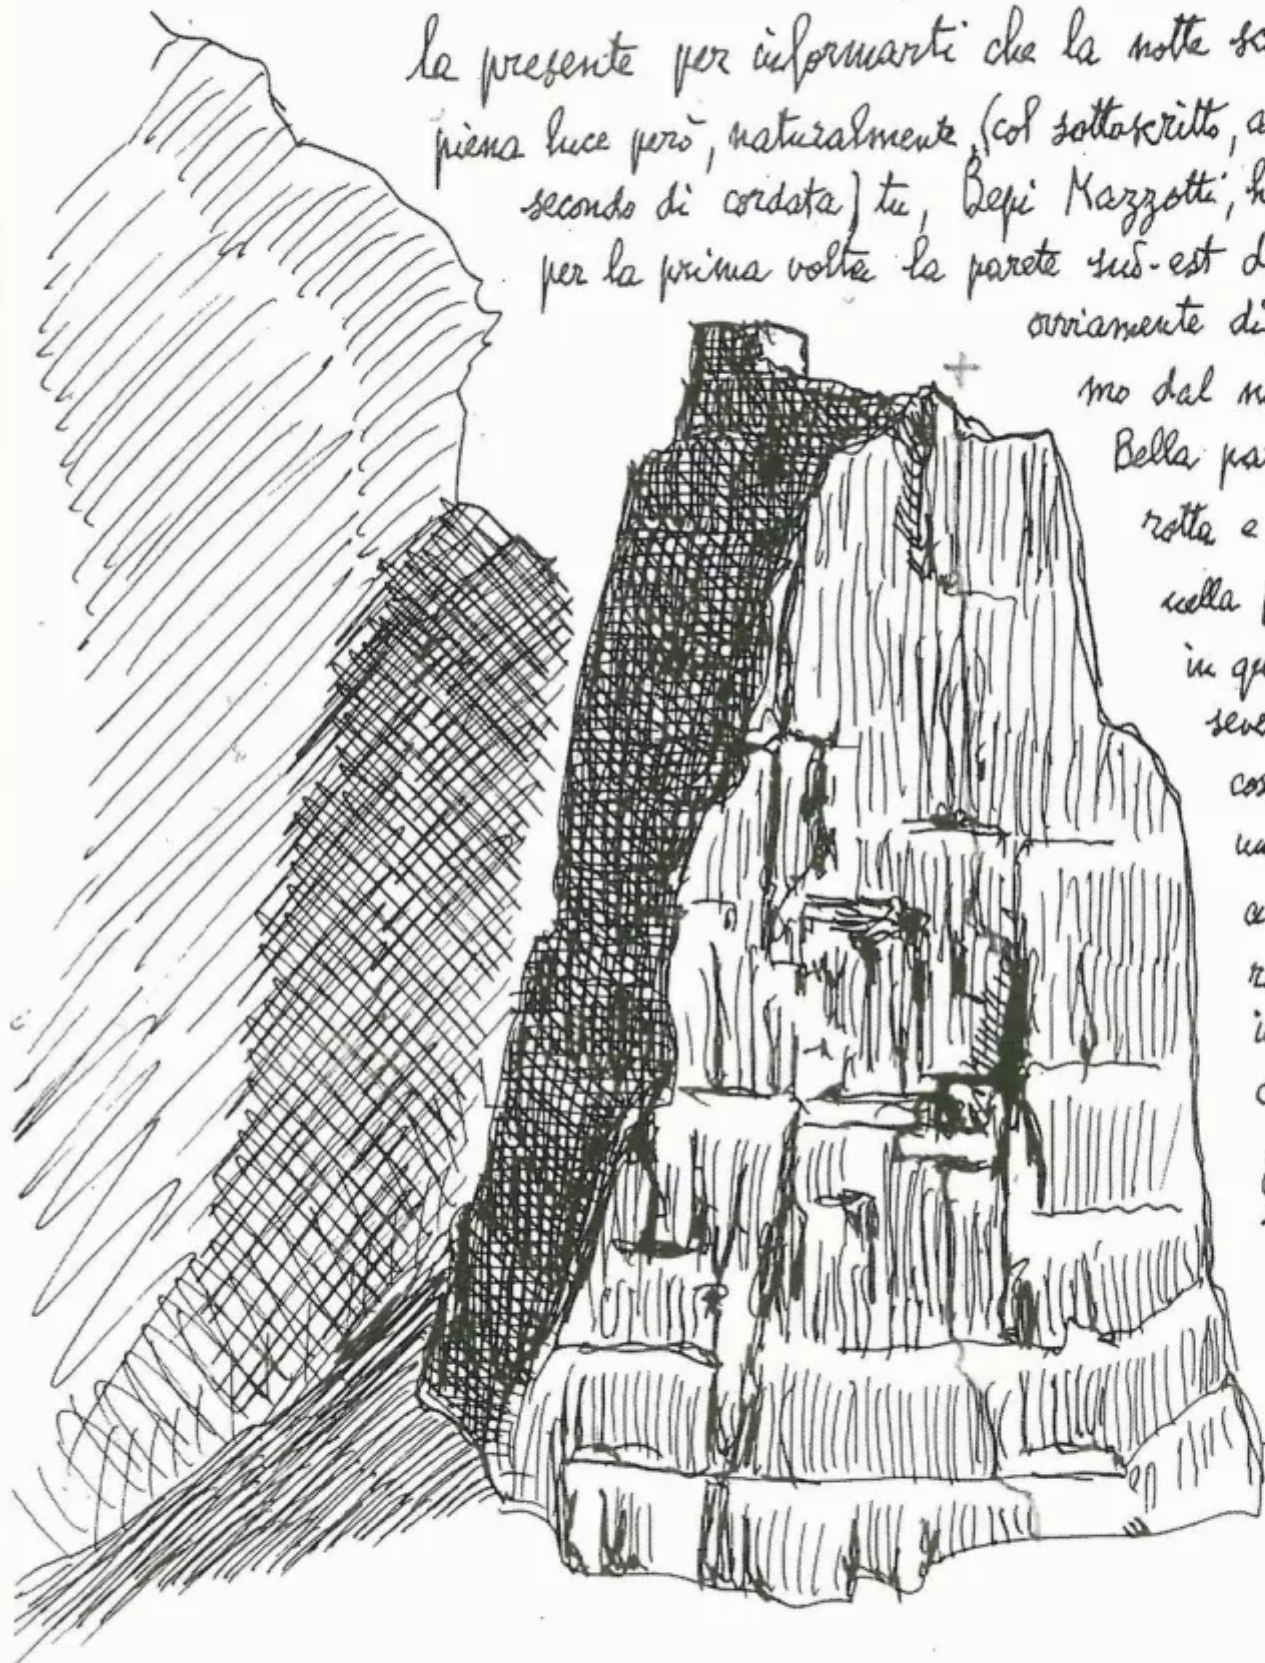 la presente per informarti che la notte sc
piena luce però, naturalmente, (col sottoscritto, a
secondo di cordata) tu, Bepi Mazzotti, h
per la prima volta la parete sud-est d
ovviamente di
mo dal n
Bella pa
rotta e
nella p
in qu
seve
cos
un
a
r
i
c